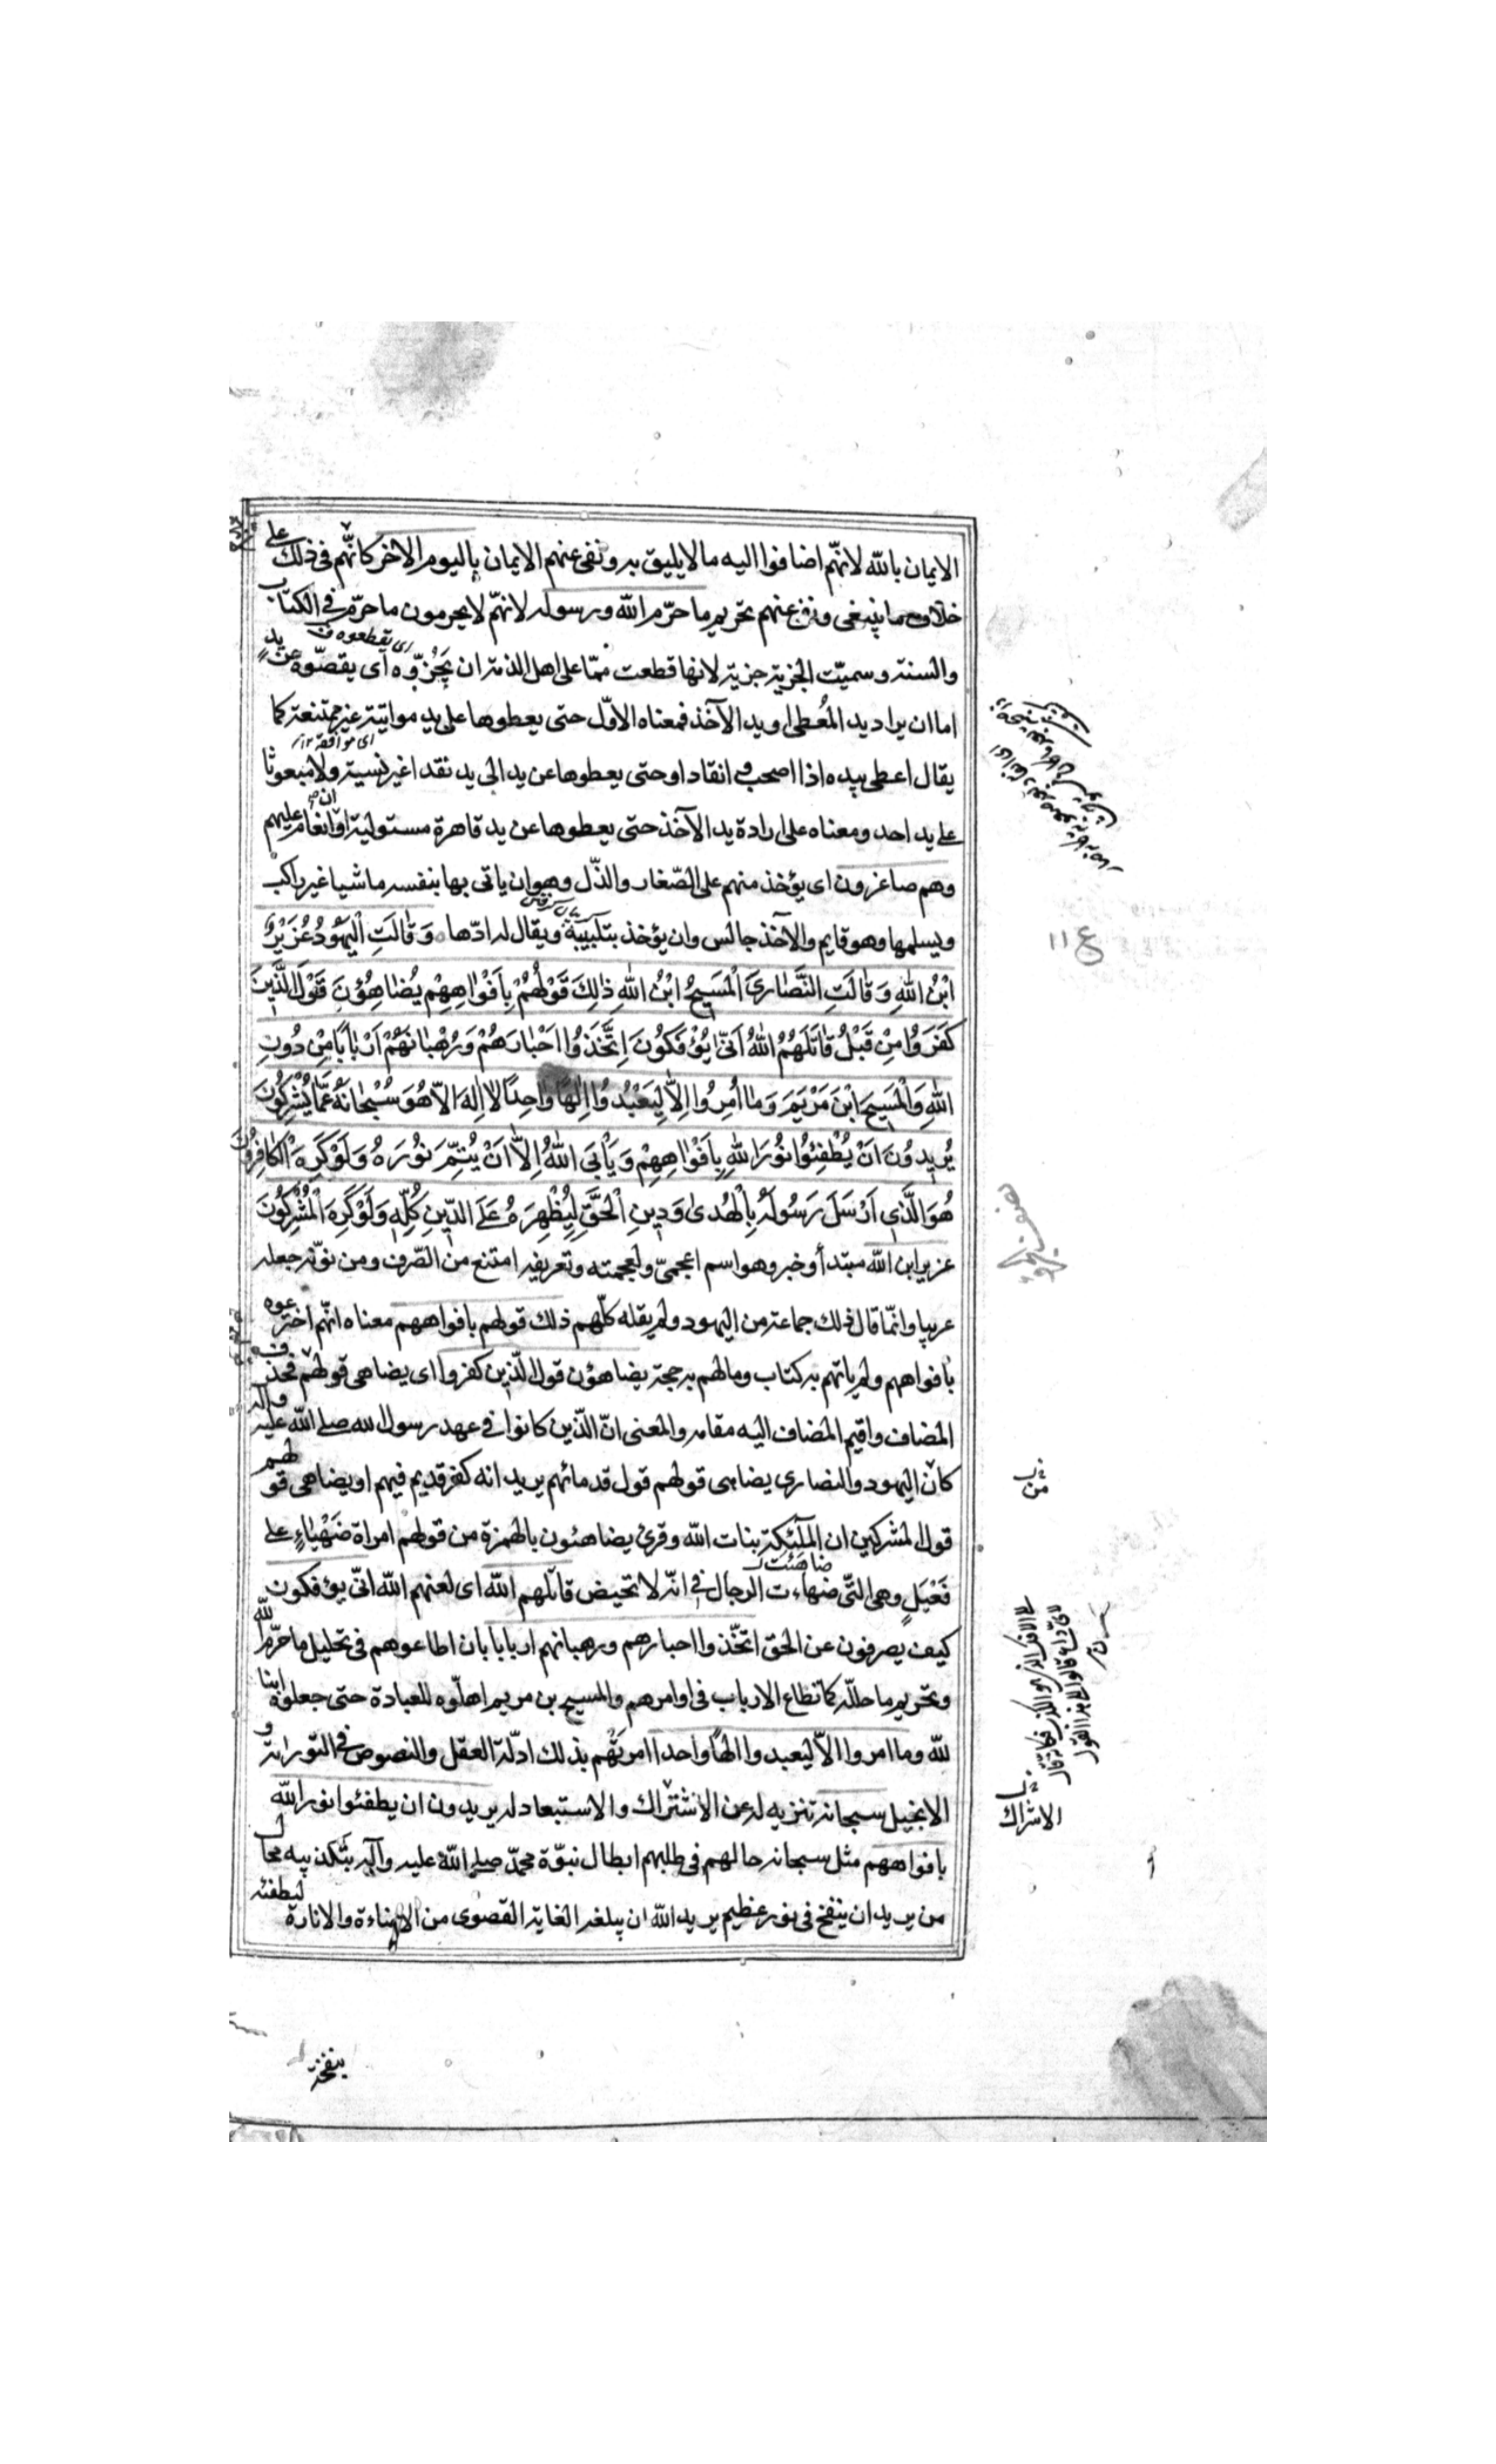 الايمان بالله لانهّم اضافوا اليه ما لا يليق به ونفى عنهم الايمان باليوم الاخر كانهّم فى ذلك على
خلاف ما ينبغى ونفى عنهم تحريم ما حرّم الله ورسوله لانهمّ لا يحرمون ما حرّم فى الكتاب
والسنة وسميّت الجزية جزية لانها قطعت ممّا على اهل الذمة ان يَجْزُوّه اى يقصّوه عن يد
اى يقطعوه
اما ان يراد يد المُعطى او يد الآخذ فمعناه الاوّل حتى يعطوها على يد مواتية غير ممتنعة كما
اى موافقة ١٢
يقال اعطى بيده اذا اصحب و انقاد او حتى يعطوها عن يد الى يد نقدا غير نسية ولا مبعوثا
على يد احد ومعناه على ارادة يد الآخذ حتى يعطوها عن يد قاهرة مستولية او انعام عليهم
وهم صاغرون اى يؤخذ منهم على الصّغار والذّل وهو ان ياتى بها بنفسه ماشيا غير راكب
ويسلمها وهو قايم والآخذ جالس وان يؤخذ بتلبيبة ويقال له ادّها وَقٰالَتِ الْيَهُودُ عُزَيْرٌ
ابْنُ اللهِ وَقٰالَتِ النَّصٰارىَ الْمَسيحُ ابْنُ اللهِ ذٰلِكَ قَوْلُهُمْ بِاَفْوٰاهِهِمْ يُضٰاهِؤُنَ قَوْلَ الَّذِينَ
كَفَرَوُا مِنْ قَبْلُ قٰاتَلَهُمُ اللهُ اَنّٰى يُؤْفَكُونَ اِتَّخَذُوا اَحْبٰارَهُمْ وَرُهْبٰانَهُمْ اَرْبٰاباً مِنْ دُونِ
اللهِ وَالْمَسيحَ ابْنَ مَرْيَمَ وَمٰا اُمِرُوا اِلّٰا لِيَعْبُدُوا اِلٰهًا وٰاحِدًا لٰا اِلٰهَ اِلّٰا هُوَ سُبْحٰانَهُ عَمّٰا يُشْرِكُونَ
يُرِيدُونَ اَنْ يُطْفِئُوا نُورَ اللهِ بِاَفْوٰاهِهِمْ وَيَأْبَى اللهُ اِلّٰا اَنْ يُتِمَّ نُورَهُ وَلَوْ كَرِهَ الْكٰافِرُونَ
هُوَ الَّذِى اَرْسَلَ رَسُولَهُ بِالْهُدىٰ وَدِينِ الْحَقِّ لِيُظْهِرَهُ عَلَى الدّينِ كُلِّهِ وَلَوْ كَرِهَ الْمُشْرِكُونَ
عزير ابن الله مبتدأ وخبر وهو اسم اعجمىّ ولعجمته وتعريفه امتنع من الصّرف ومن نوّنه جعله
عربيا وانمّا قال ذلك جماعة من اليهود ولم يقله كلّهم ذلك قولهم بافواههم معناه انهّم اخترعوه
بافواههم ولم ياتهم به كتاب وما لهم به حجة يضاهؤن قول الّذين كفروا اى يضاهى قولهم فحذف
المضاف واقيم المضاف اليه مقامه والمعنى انّ الّذين كانوا فى عهد رسول الله صلى الله عليه وآله
كان اليهود والنصارى يضاهى قولهم قول قدمائهم يريد انه كفر قديم فيهم او يضاهى قولهم
قول المشركين ان الملئكة بنات الله وقرئ يضاهئون بالهمزة من قولهم امراة ضَهْيٰاءٍ على
فَعْيَلٍ وهى التّى ضهاءت الرجال فى انّه لا تحيض قاتلهم الله اى لعنهم الله انّى يؤفكون
ضاهَئَتْ
كيف يصرفون عن الحق اتخّذوا احبارهم ورهبانهم اربابا بان اطاعوهم فى تحليل ما حرّم الله
وتحريم ما حللّه كما تطاع الارباب فى اوامرهم والمسيح بن مريم اهلّوه للعبادة حتى جعلوه ابنا
لله وما امروا الاّ ليعبدوا الهًا واحدا امرتهُم بذلك ادلّة العقل والنصوص فى التورية و
الانجيل سبحانه تنزيه له عن الاشتراك والاستبعاد له يريدون ان يطفئوا نور الله
بافواههم مثل سبحانه حالهم فى طلبهم ابطال نبوّة محمدّ صلى الله عليه وآله بتكذيبه بحال
من يريد ان ينفخ فى نور عظيم يريد الله ان يبلغه الغاية القصوى من الاضاءة والانارة ليطفئه
ع ١١
من
الاشراك
بنفخه